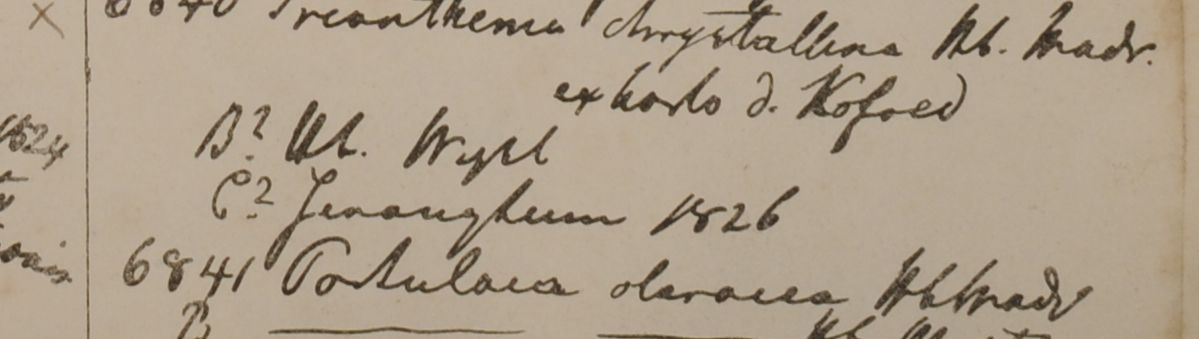 6840 Trianthema chrystallina Hb. Madr.
ex horto d. Kofoed
B? Hb. Wight
C? Jenanghuen 1826
1824
6841 Portulaca oleracea Hb Madr
B